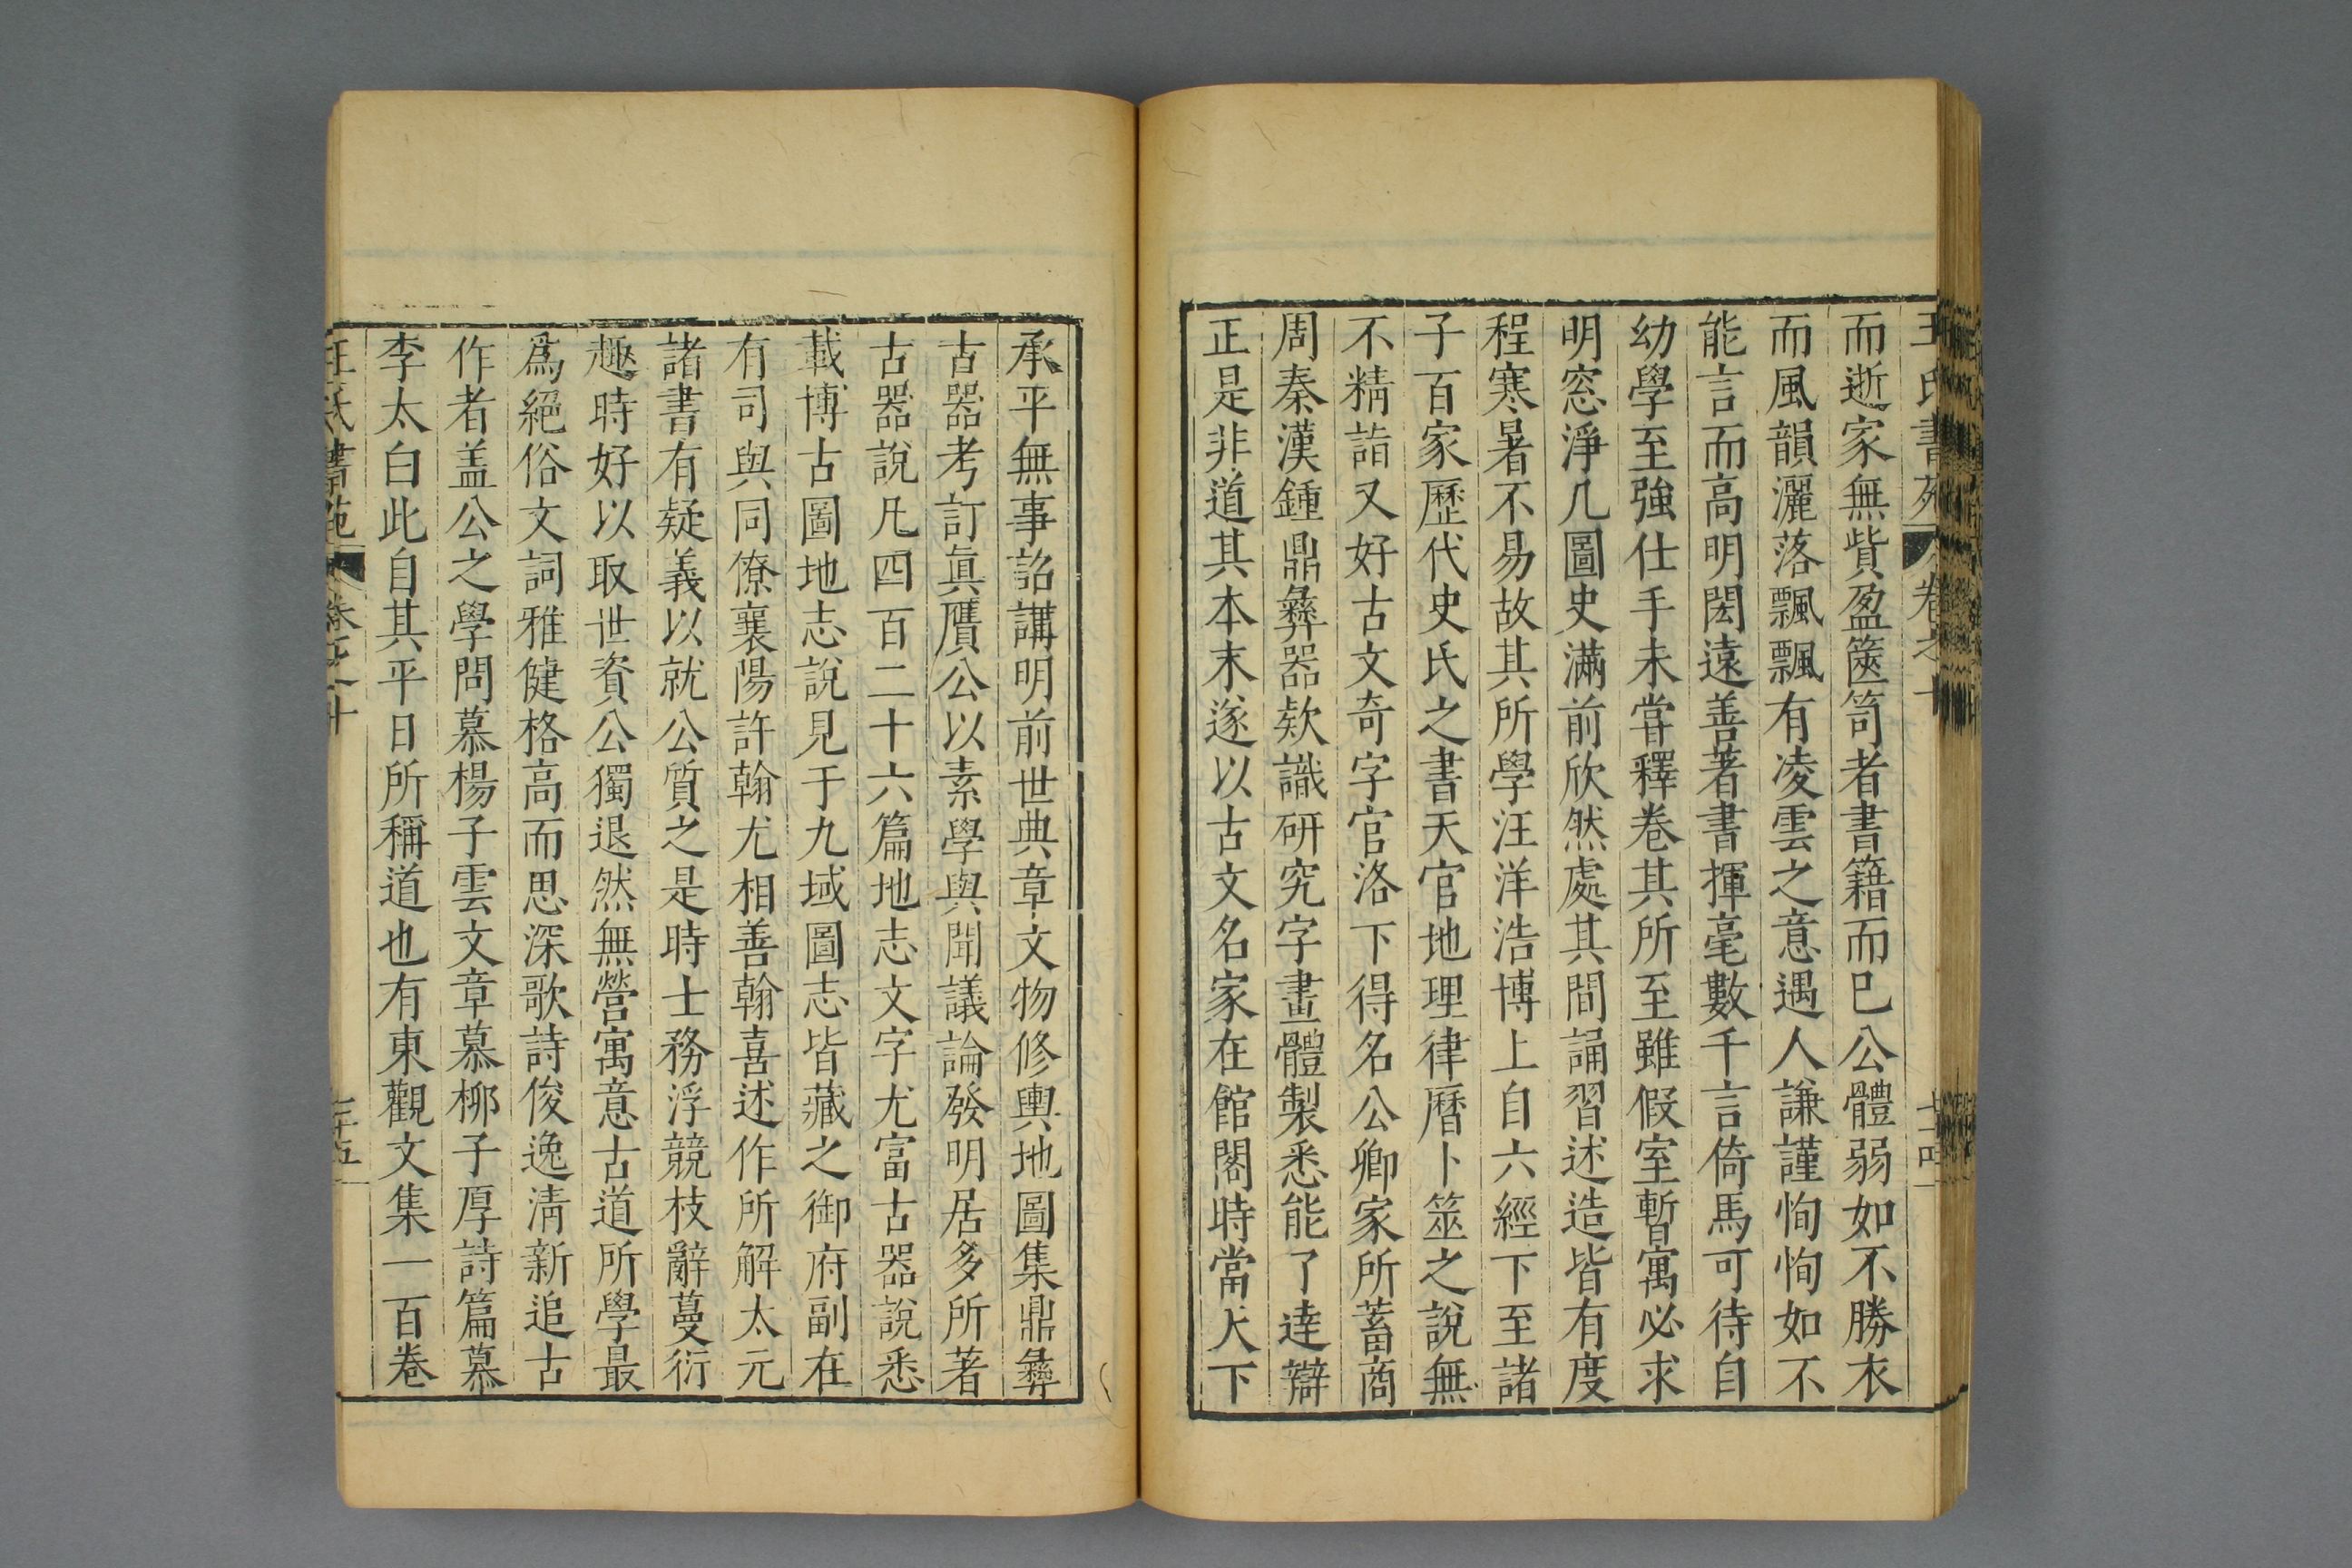 王氏書苑 卷之十
而逝家無貲盈篋笥者書籍而已公體弱如不勝衣
而風韻灑落飄飄有凌雲之意遇人謙謹恂恂如不
能言而高明閎遠善著書揮毫數千言倚馬可待自
幼學至強仕手未甞釋卷其所至雖假室暫寓必求
明窓淨几圖史滿前欣然處其間誦習述造皆有度
程寒暑不易故其所學汪洋浩博上自六經下至諸
子百家歷代史氏之書天官地理律曆卜筮之說無
不精詣又好古文奇字官洛下得名公卿家所蓄商
周秦漢鍾鼎彝器欵識研究字畫體製悉能了達辯
正是非道其本末遂以古文名家在館閣時當天下
承平無事詔講明前世典章文物修輿地圖集鼎彝
古器考訂眞贋公以素學與聞議論發明居多所著
古器說凡四百二十六篇地志文字尤富古器說悉
載博古圖地志說見于九域圖志皆藏之御府副在
有司與同僚襄陽許翰尤相善翰喜述作所解太元
諸書有疑義以就公質之是時士務浮競枝辭蔓衍
趣時好以取世資公獨退然無營寓意古道所學最
爲絕俗文詞雅健格高而思深歌詩俊逸淸新追古
作者盖公之學問慕楊子雲文章慕柳子厚詩篇慕
李太白此自其平日所稱道也有東觀文集一百卷
王氏書苑 卷之十